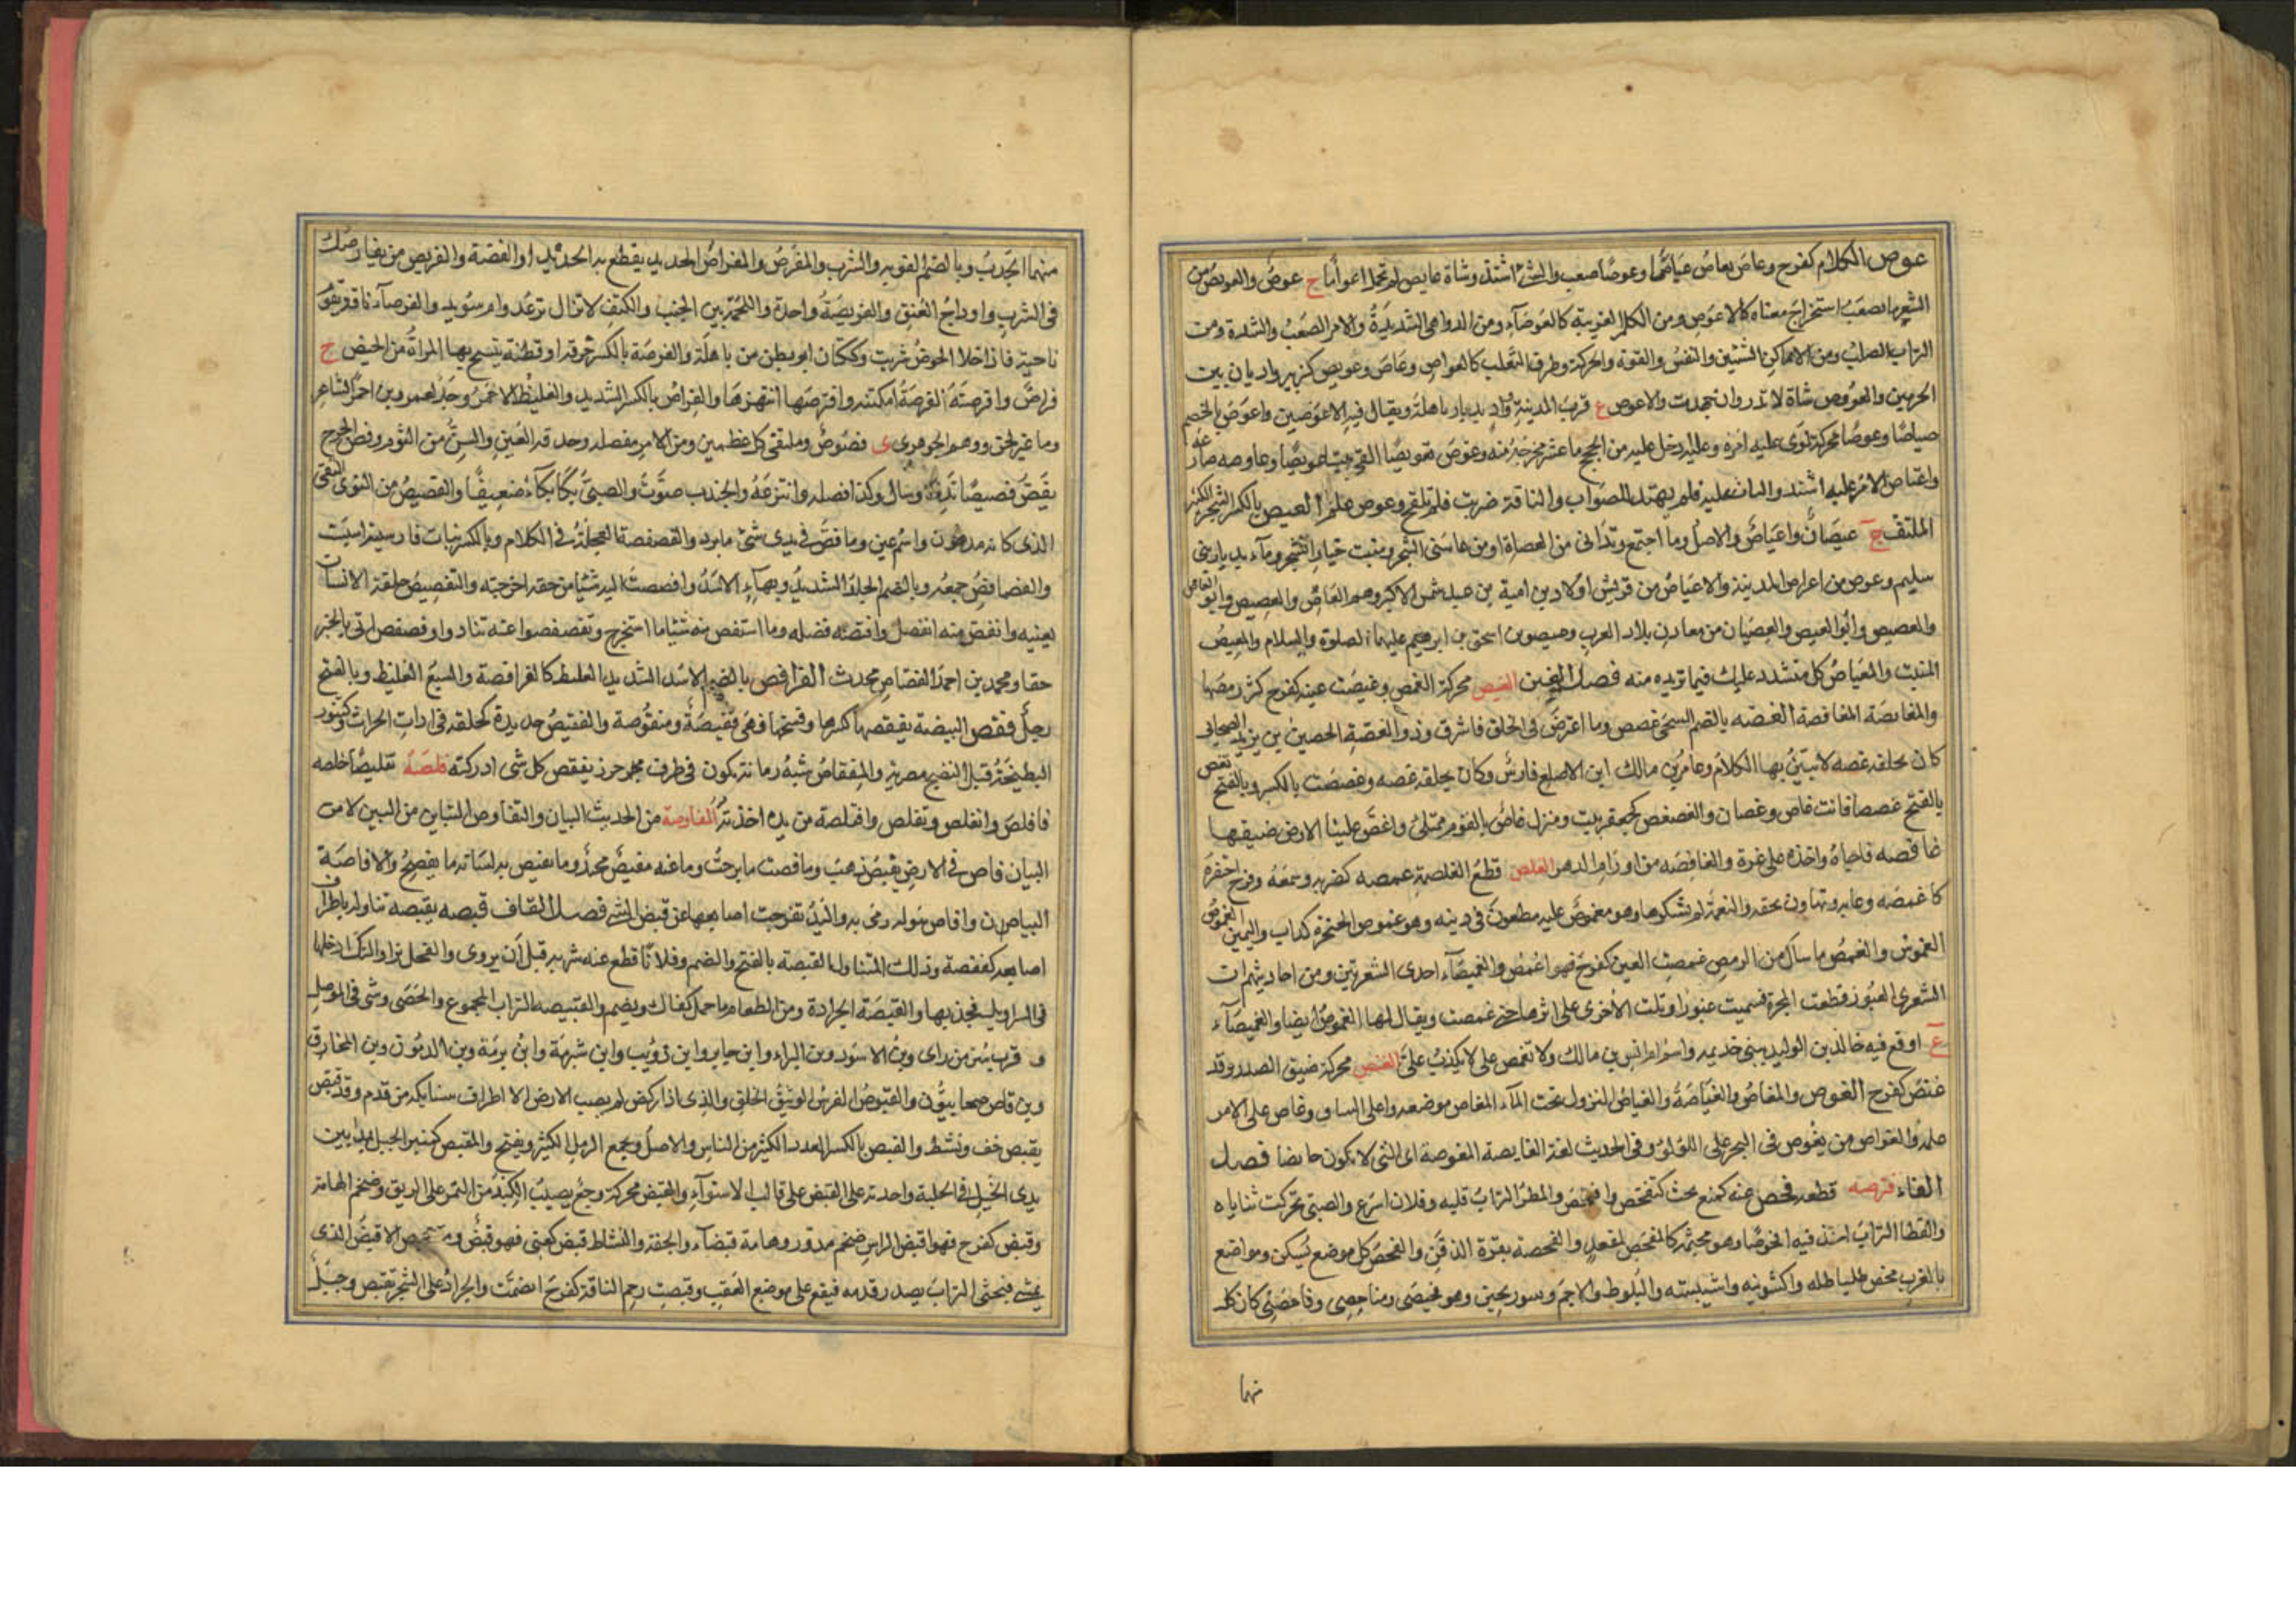 عوص الكلام كفرح وعاص يعاص عياصا وعوصا صعب والشئ اشتد وشاة عايص لم تحمل اعواما ج عوص والعويص من
الشعر ما يصعب استخراج معناه كالاعوص ومن الكلم الغريبة كالعوصآء ومن الدواهى الشديدة والامر الصعب والشدة ومن
التراب الصلب ومن الاماكن الشئين والنفس والقوة والحركة وطرف الثعلب كالعواص وعاص وعويص كزبير واديان بين
الحرمين والعووص شاة لا تدر وان جهدت والاعوص ع قرب المدينة وواد بديار باهلة ويقال فيه الاعوصين واعوص بالخصم
عياصا وعوصا محركة لوى عليه امره وعليه ادخل عليه من الحجج ما عسر مخرجه منه وعوص تعويصا القى بيتا عويصا وعاوصه صارعه
واعتاص الامر عليه اشتد والتاث عليه فلم يهتد للصواب والناقة ضربت فلم تلقح وعوص علم العيص بالكسر الشجر الكثير
الملتف ج عيصان واعياص والاصل وما اجتمع وتدانى من العضاة او من عاسى الشجر ومنبت خيار الشجر ومآء بديار بنى
سليم وعوص من اعراض المدينة والاعياص من قريش اولاد بن امية بن عبد شمس الاكبر وهم العاص والعيص وابو العاص
والعيص وابو العيص والعيصان من معادن بلاد العرب وعيصو بن اسحق بن ابرهيم عليهما الصلوة والسلام والمعيص
المنبت والمعياص كل متشدد عليك فيما تريده منه فصل الغين الغبص محركة الغمص وغبصت عينه كفرح كثر رمصها
والمغابصة المغافصة الغصه بالضم الشجى غصص وما اعترض فى الحلق فاشرق وذو الغصة الحصين بن يزيد الصحابى
كان بحلقه غصه لا يتبين بها الكلام وعامر بن مالك ابن الاصلع فارس وكان بحلقه غصه وغصصت بالكسر وبالفتح تغص
بالفتح غصصا فانت غاص وغصان والغصغص كجعفر نبت ومنزل غاص بالقوم ممتلئ واغص علينا الارض ضيقها
غافصه فاجاه واخذه على غرة والغافصه من اوازم الدهر الغلص قطع الغلصمة غمصه كضربه وسمعه وفرح احتقره
كاغتمصه وعابه وتهاون بحقه والنعمة لم يشكرها وهو مغموص عليه مطعون فى دينه وهو غموص الحنجرة كذاب واليمين الغموص
الغموس والغمص ما سال من الرمص غمصت العين كفرح فهو اغمص والغميصآء احدى الشعريين ومن احاديثهم ان
الشعرى العبور قطعت المجرة فسميت عبورا وبكت الاخرى على اثرها حتى غمصت ويقال لها الغموص ايضا والغميصآء
ع اوقع فيه خالد بن الوليد ببنى خذيمه واسم ام انس بن مالك ولا تغمص على لا تكذب على الغنص محركة ضيق الصدر وقد
غنص كفرح الغوص والمغاص والغياصة والغياص النزول تحت المآء المغاص موضعه واعلى الساق وغاص على الامر
علمه والغواص من يغوص فى البحر على اللؤلؤ وفى الحديث لعنة الغايصة المغوصة اى التى لا تكون حايضا فصل
الفاء فرصه قطعه فحص عنه كمنع بحث كتفحص وافتحص والمطر التراب قلبه وفلان اسرع والصبى تحركت ثناياه
والقطا التراب اتخذ فيه افحوصا وهو مجثمه كالمفحص كمقعد والفحصة نقرة الذقن والفحص كل موضع يسكن ومواضع
بالغرب فحص طليطله واكشونيه واشبيليه والبلوط والاجم وسورنجين وهو فحيصى ومفاحصى وفاحصنى كان كل
نهما
منهما الحدث وبالضم القوبه والشرب والمفرص والمفراص الحديد يقطع به الحديد او الفضة والفريص من يفارصك
فى الشرب واوداج العنق والفريصة واحدة واللحمة بين الجنب والكتف لا تزال ترعد وام سويد والفرصآء ناقة تقوم
ناحية فاذا خلا الحوض شربت وككتان ابو بطن من باهلة والفرصة بالكسر خرقة او قطنة يتمسح بها المراة من الحيض ج
فراص وافرصته الفرصة امكنته وافترصها انتهزها والفراص بالكسر الشديد والغليظ الاحمر وجد لعمرو بن احمر الشاعر
وما غيرلحق ووهم الجوهرى ى فصوص وملتقى كل عظمين ومن الامر مفصله وحدقة العين والسن من الثوم وفص الجرح
يفص فصيصا ندى وسال وكذا فصله وانتزعه والجندب صوت والصبى بكى بكآء ضعيفا والفصيص من النوى النقى
الذى كانه مدهون واسم عين وما فص فى يدى شئ ما برد والفصفصة العجلة فى الكلام وبالكسر نبات فارسيته اسبست
والفصافص جمعه وبالضم الجلد الشديد وبهآء الاسد وافصصت اليه شيئا من حقه اخرجته والتفصيص حملقة الانسان
بعينيه وانفص منه انفصل وافتصه فصله وما استفص منه شيئا ما استخرج وتفصفصوا عنه تنادوا وفصفص اتى بالخبر
حقا ومحمد بن احمد الفصاص محدث الفرافص بالضم الاسد الشديد الغليظ كالفرافصة والسبع الغليظ وبالفتح
رجل فقص البيضة يفقصها كسرها وفضخها فهى فقيصة ومفقوصة والفقيص حديدة كحلقة فى ادات الحراث وكتنور
البطيخة قبل النضج مصرية والمفقاص شبه رمانة تكون فى طرف جحر حرز يفقص كل شى ادركته فلصه تفليصا خلصه
فافلص وانفلص وتفلص وافتلصه من يده اخذته المفاوصة من الحديث البيان والتفاوص التباين من البين لا من
البيان فاص فى الارض يفيص ذهب وما فصت ما برحت وما عنه مفيص محرز وما يفيص به لسانه ما يفصح والافاصة
البياص ن وافاص ببوله رمى به واليد تفرجت اصابعها عن قبض الشئ فصل القاف قبصه يقبصه تناوله باطراف
اصابعه كقبصه وذلك المتناول القبصة بالفتح والضم وفلانا قطع عنه شربه قبل ان يروى والفحل نزا والتكة ادخلها
فى السراويل فجذبها والقبيصة الجرادة ومن الطعام ما حمل كفاك ويضم والقبيصه التراب المجموع والحصى وشى فى الموصل
و قرب سرمن راى وبن الاسود وبن البراء وابن جابر وابن ذؤيب وابن شبرمة وابن برمة وبن الدمون وبن المخارق
وبن وقاص صحابيون والقبوص الفرس الوثيق الخلق والذى اذا ركض لم يصب الارض الا اطراف سنابكه من قدم وقد قبص
يقبص خف ونشط والقبص بالكسر العدد الكثير من الناس والاصل ومجمع الرمل الكثير ويفتح والمقبص كمنبر الحبل يمد بين
يدى الخيل فى الحلبة واخذته على المقبص على قالب الاستوآء والقبص محركة وجع يصيب الكبد من التمر على الريق وضخم الهامة
وقبص كفرح فهو اقبص الراس ضخم مدور وهامة قبصآء والخفة والنشاط قبص كعنى فهو قبص والاقبص الذى
يمشى فيحثى التراب بصدر قدمه فيقع على موضع العقب وقبصت رحم الناقة كفرح انضمت والجراد على الشجر تقبص وحبل